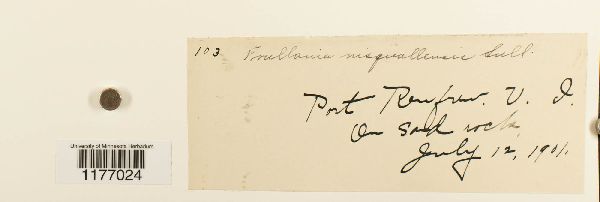 103 Frullania nisquallensis Sull.
Port Renfrew. V. I.
On sand rock,
July 12, 1901.
University of Minnesota Herbarium
1177024